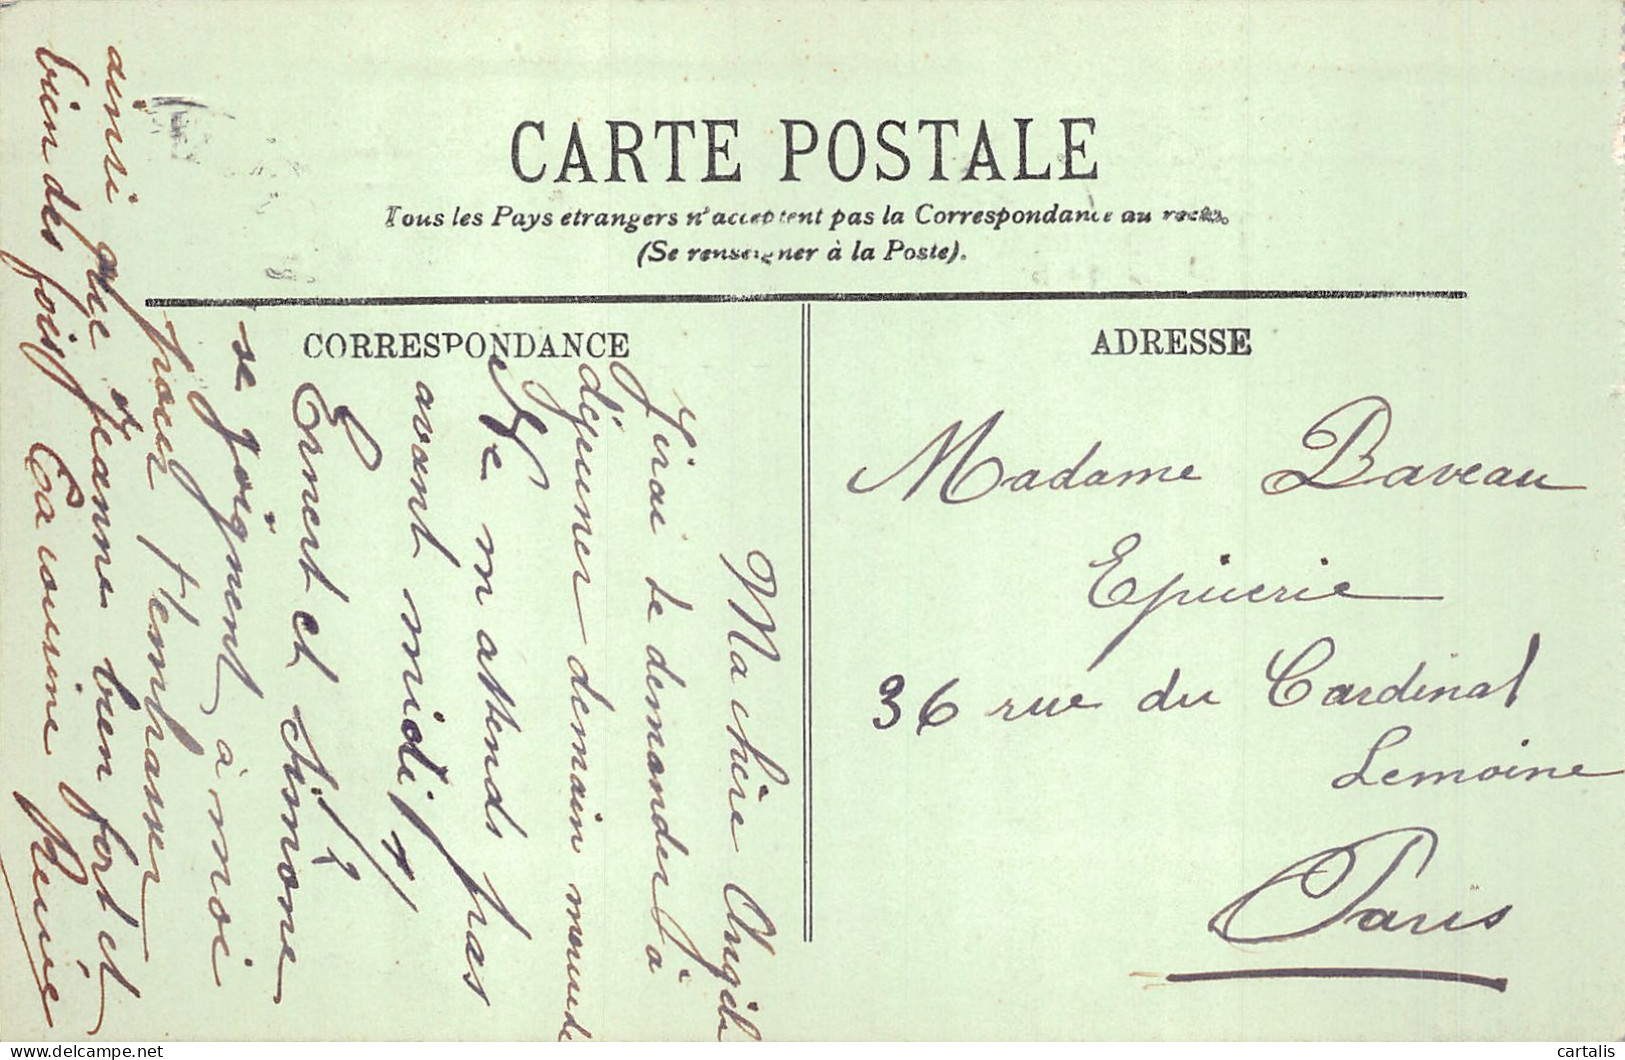 CARTE POSTALE
Tous les Pays etrangers n'acceptent pas la Correspondance au recto
(Se renseigner à la Poste).
CORRESPONDANCE
Ma chère Angèle
J'irai te demander à
déjeuner demain
Ne m'attends pas
avant midi ¼
Ernest et Simone
se joignent à moi
pour t'embrasser
ainsi que Jeanne bien fort et
bien des fois Ta cousine Renée
ADRESSE
Madame Baveau
Epicerie
36 rue du Cardinal
Lemoine
Paris
delcampe.net
cartalis